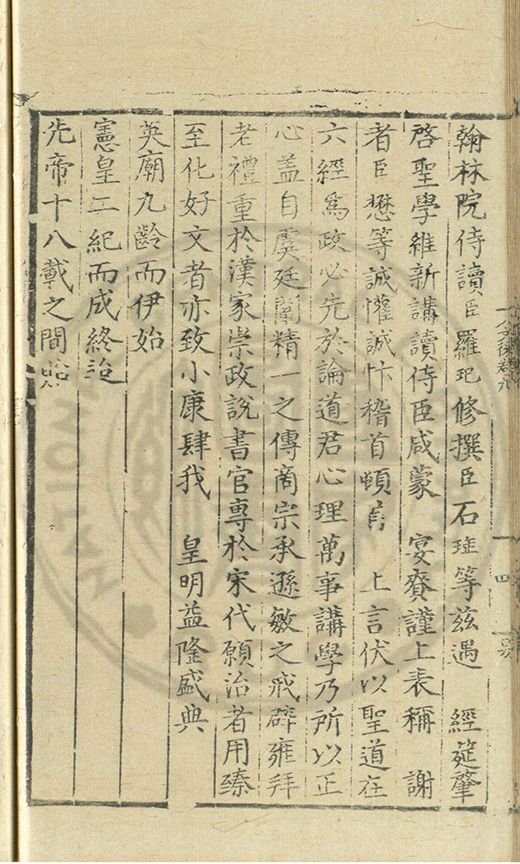 翰林院侍讀臣羅玘修撰臣石珤等兹遇　經筵肇
啓聖學維新講讀侍臣咸蒙　宴賚謹上表稱　謝
者臣懋等誠懽誠忭稽首頓首　上言伏以聖道在
六經爲政必先於論道君心理萬事講學乃所以正
心盖自虞廷闡精一之傳商宗承遜敏之戒辟雍拜
老禮重於漢家崇政說書官專於宋代願治者用臻
至化好文者亦致小康肆我　皇明益隆盛典
英廟九齡而伊始
憲皇二紀而成終迨
先帝十八載之間
四